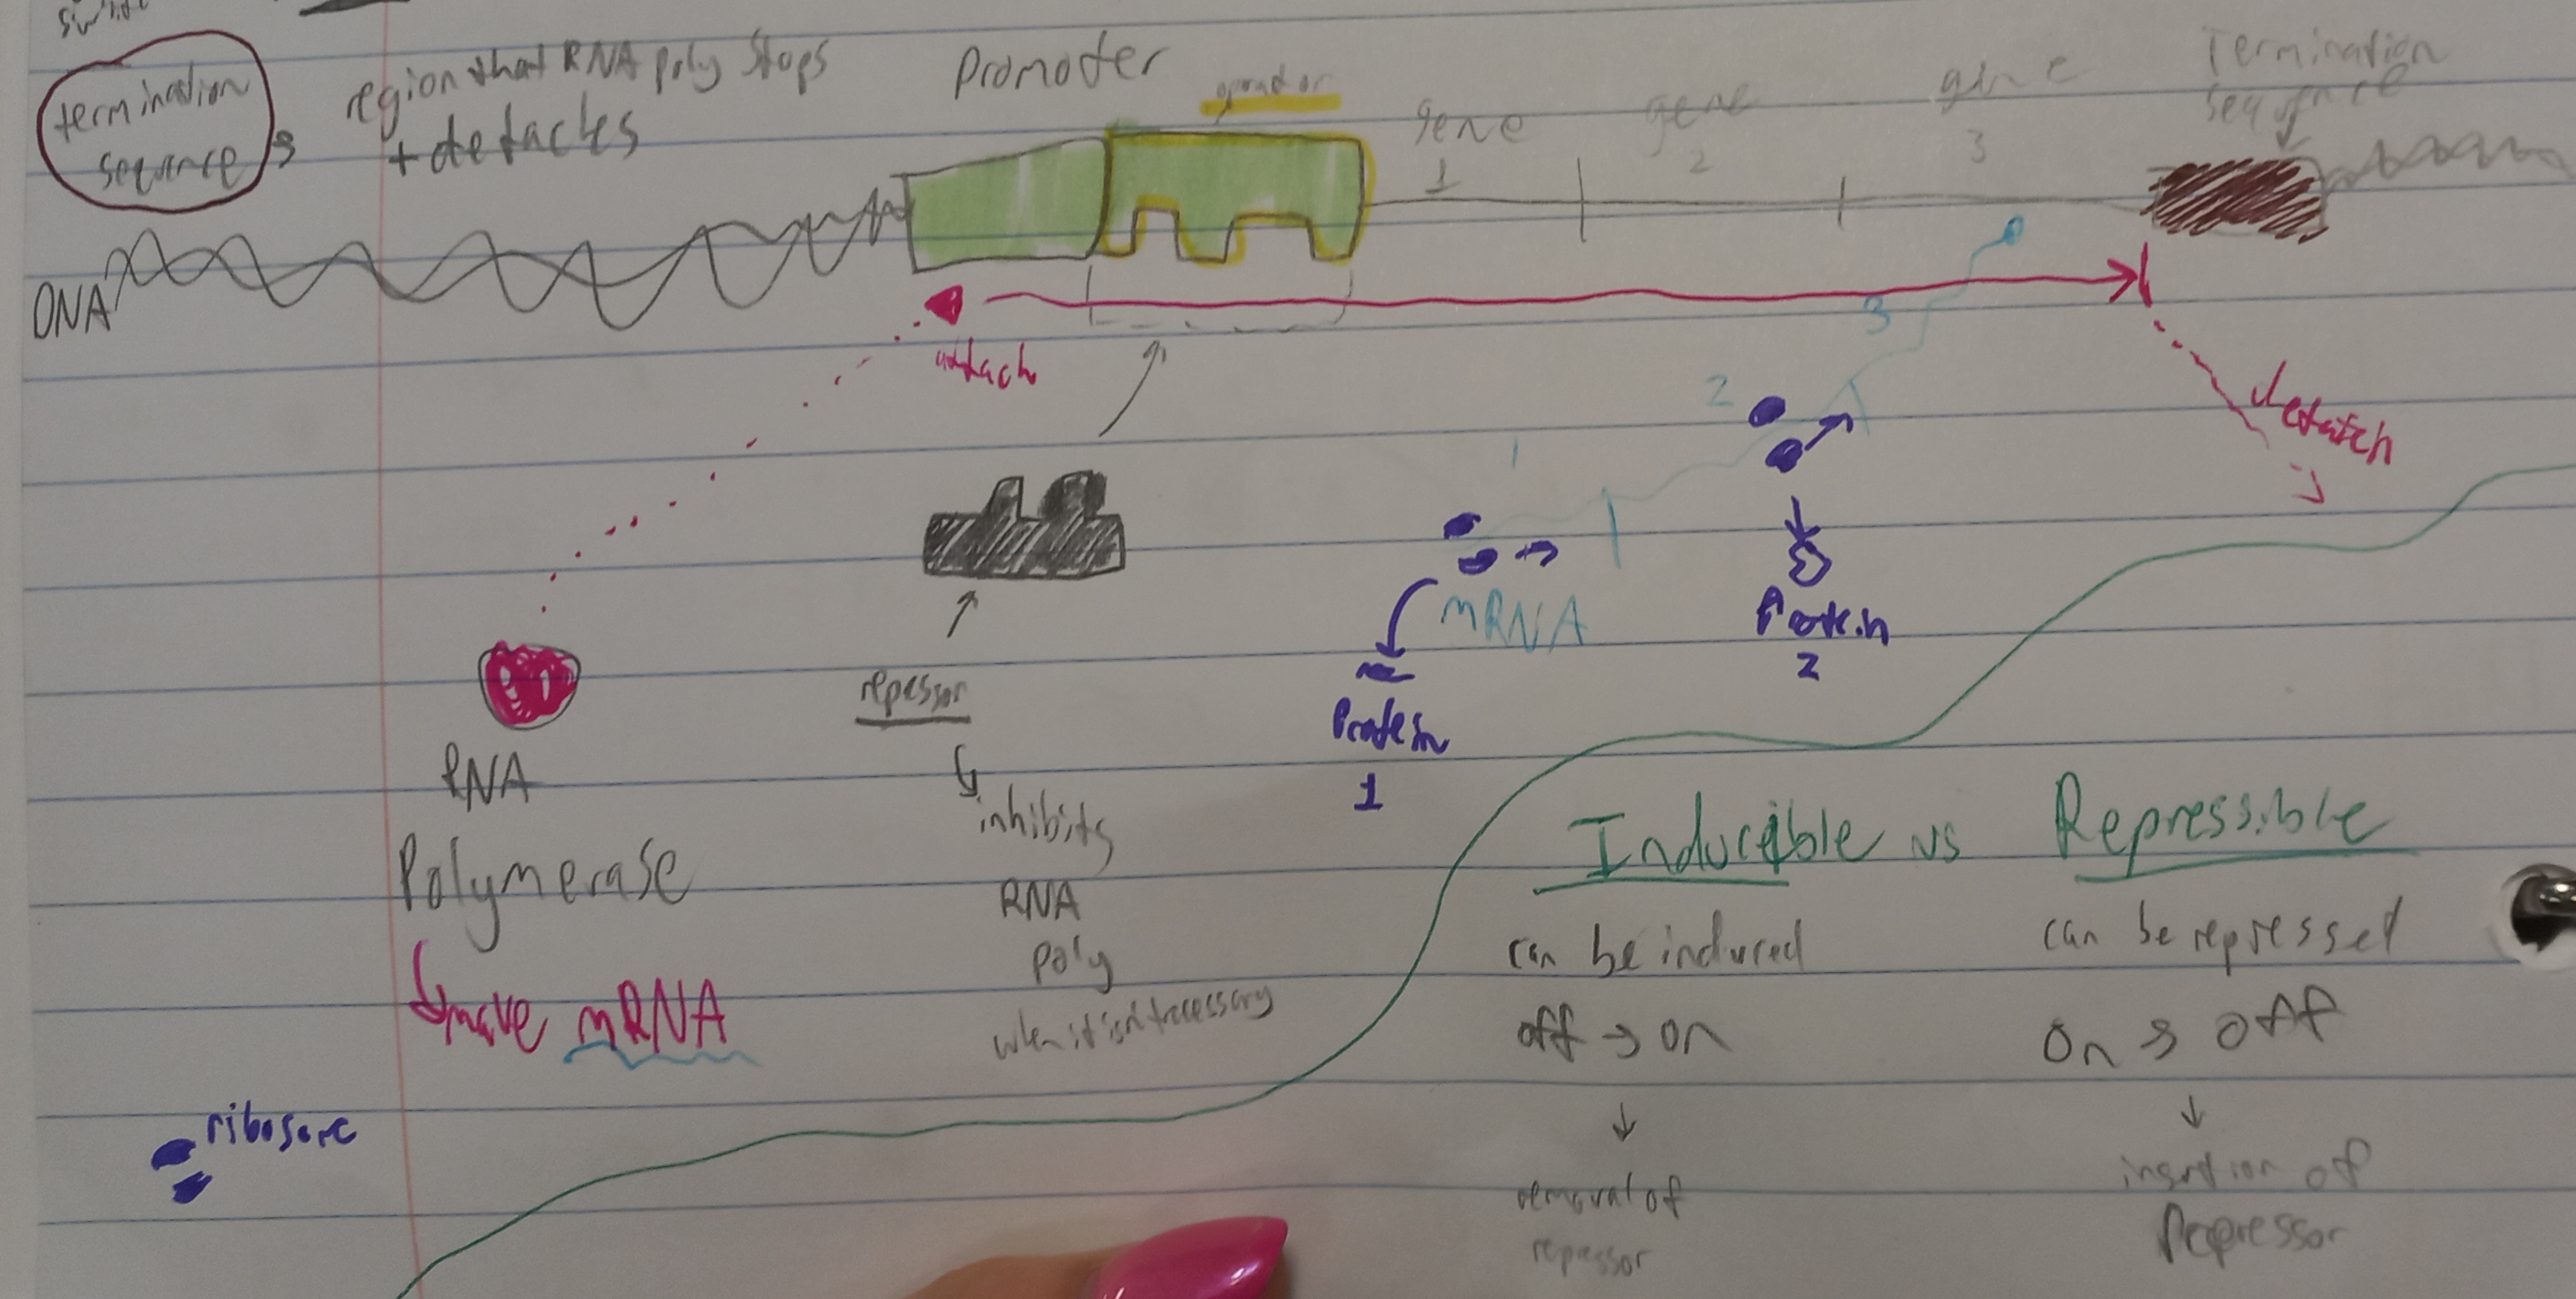 termination
sequence
region that RNA poly stops
+ detaches
Promoter
operator
gene
1
gene
2
gene
3
Termination
sequence
DNA
attach
detatch
1
2
3
mRNA
Protein
1
Protein
2
repessor
inhibits
RNA
poly
when it isn't necessary
RNA
Polymerase
make mRNA
ribosome
Inducible vs Repressible
can be induced
off → on
↓
removal of
repressor
can be repressed
On → Off
↓
insertion of
Repressor